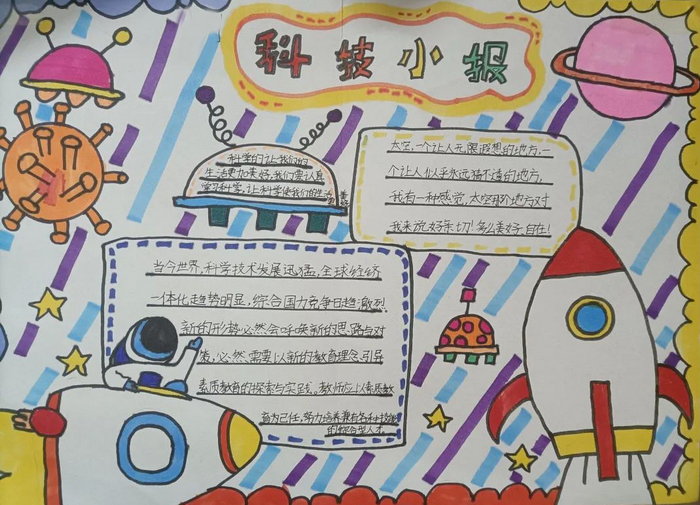 科技小报
科学的让我们的
生活更加美好,我们要认真
学习科学,让科学使我们的生活
太空,一个让人无限遐想的地方,一
个让人似乎永远猜不透的地方,
我有一种感觉,太空那个地方对
我来说,好亲切!多么美好,自在!
当今世界,科学技术发展迅猛,全球经济
一体化趋势明显,综合国力竞争日趋激烈.
新的形势必然会呼唤新的思路与对
策,必然需要以新的教育理念,引导
素质教育的探索与实践。教师应以素质教
育为己任,努力培养兼有各种技能
的综合型人才.